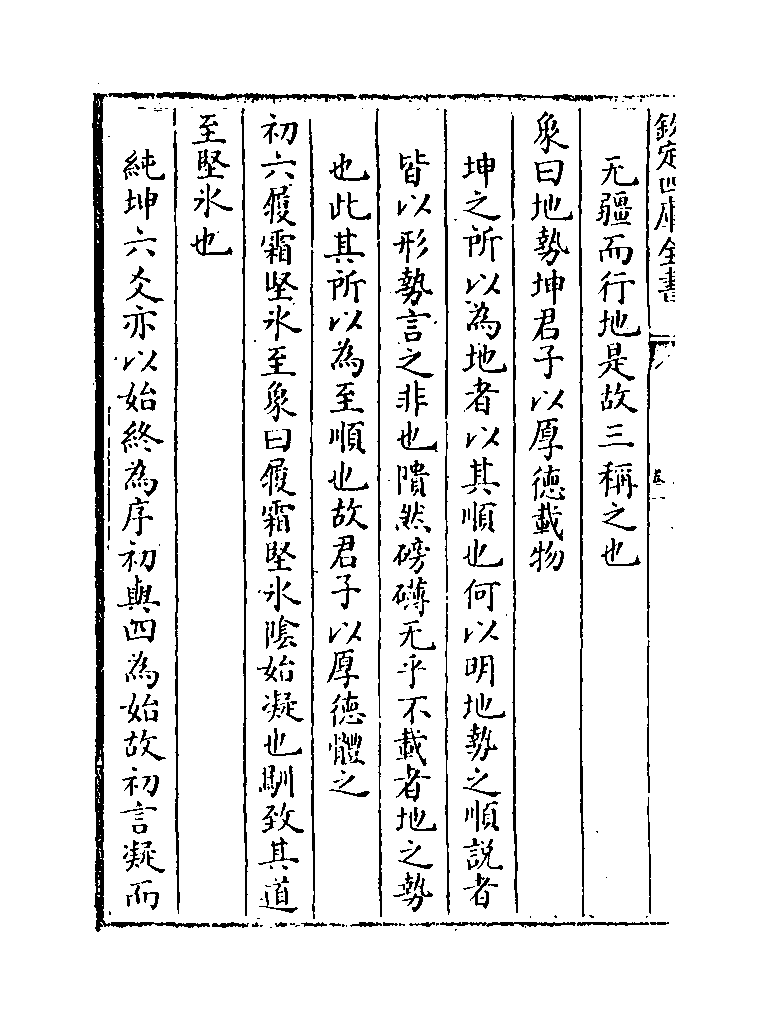 欽定四庫全書
卷一
无疆而行地是故三稱之也
象曰地勢坤君子以厚德載物
坤之所以為地者以其順也何以明地勢之順説者
皆以形勢言之非也隤然磅礴无乎不載者地之勢
也此其所以為至順也故君子以厚德體之
初六履霜堅氷至象曰履霜堅氷隂始凝也馴致其道
至堅氷也
純坤六爻亦以始終為序初與四為始故初言凝而